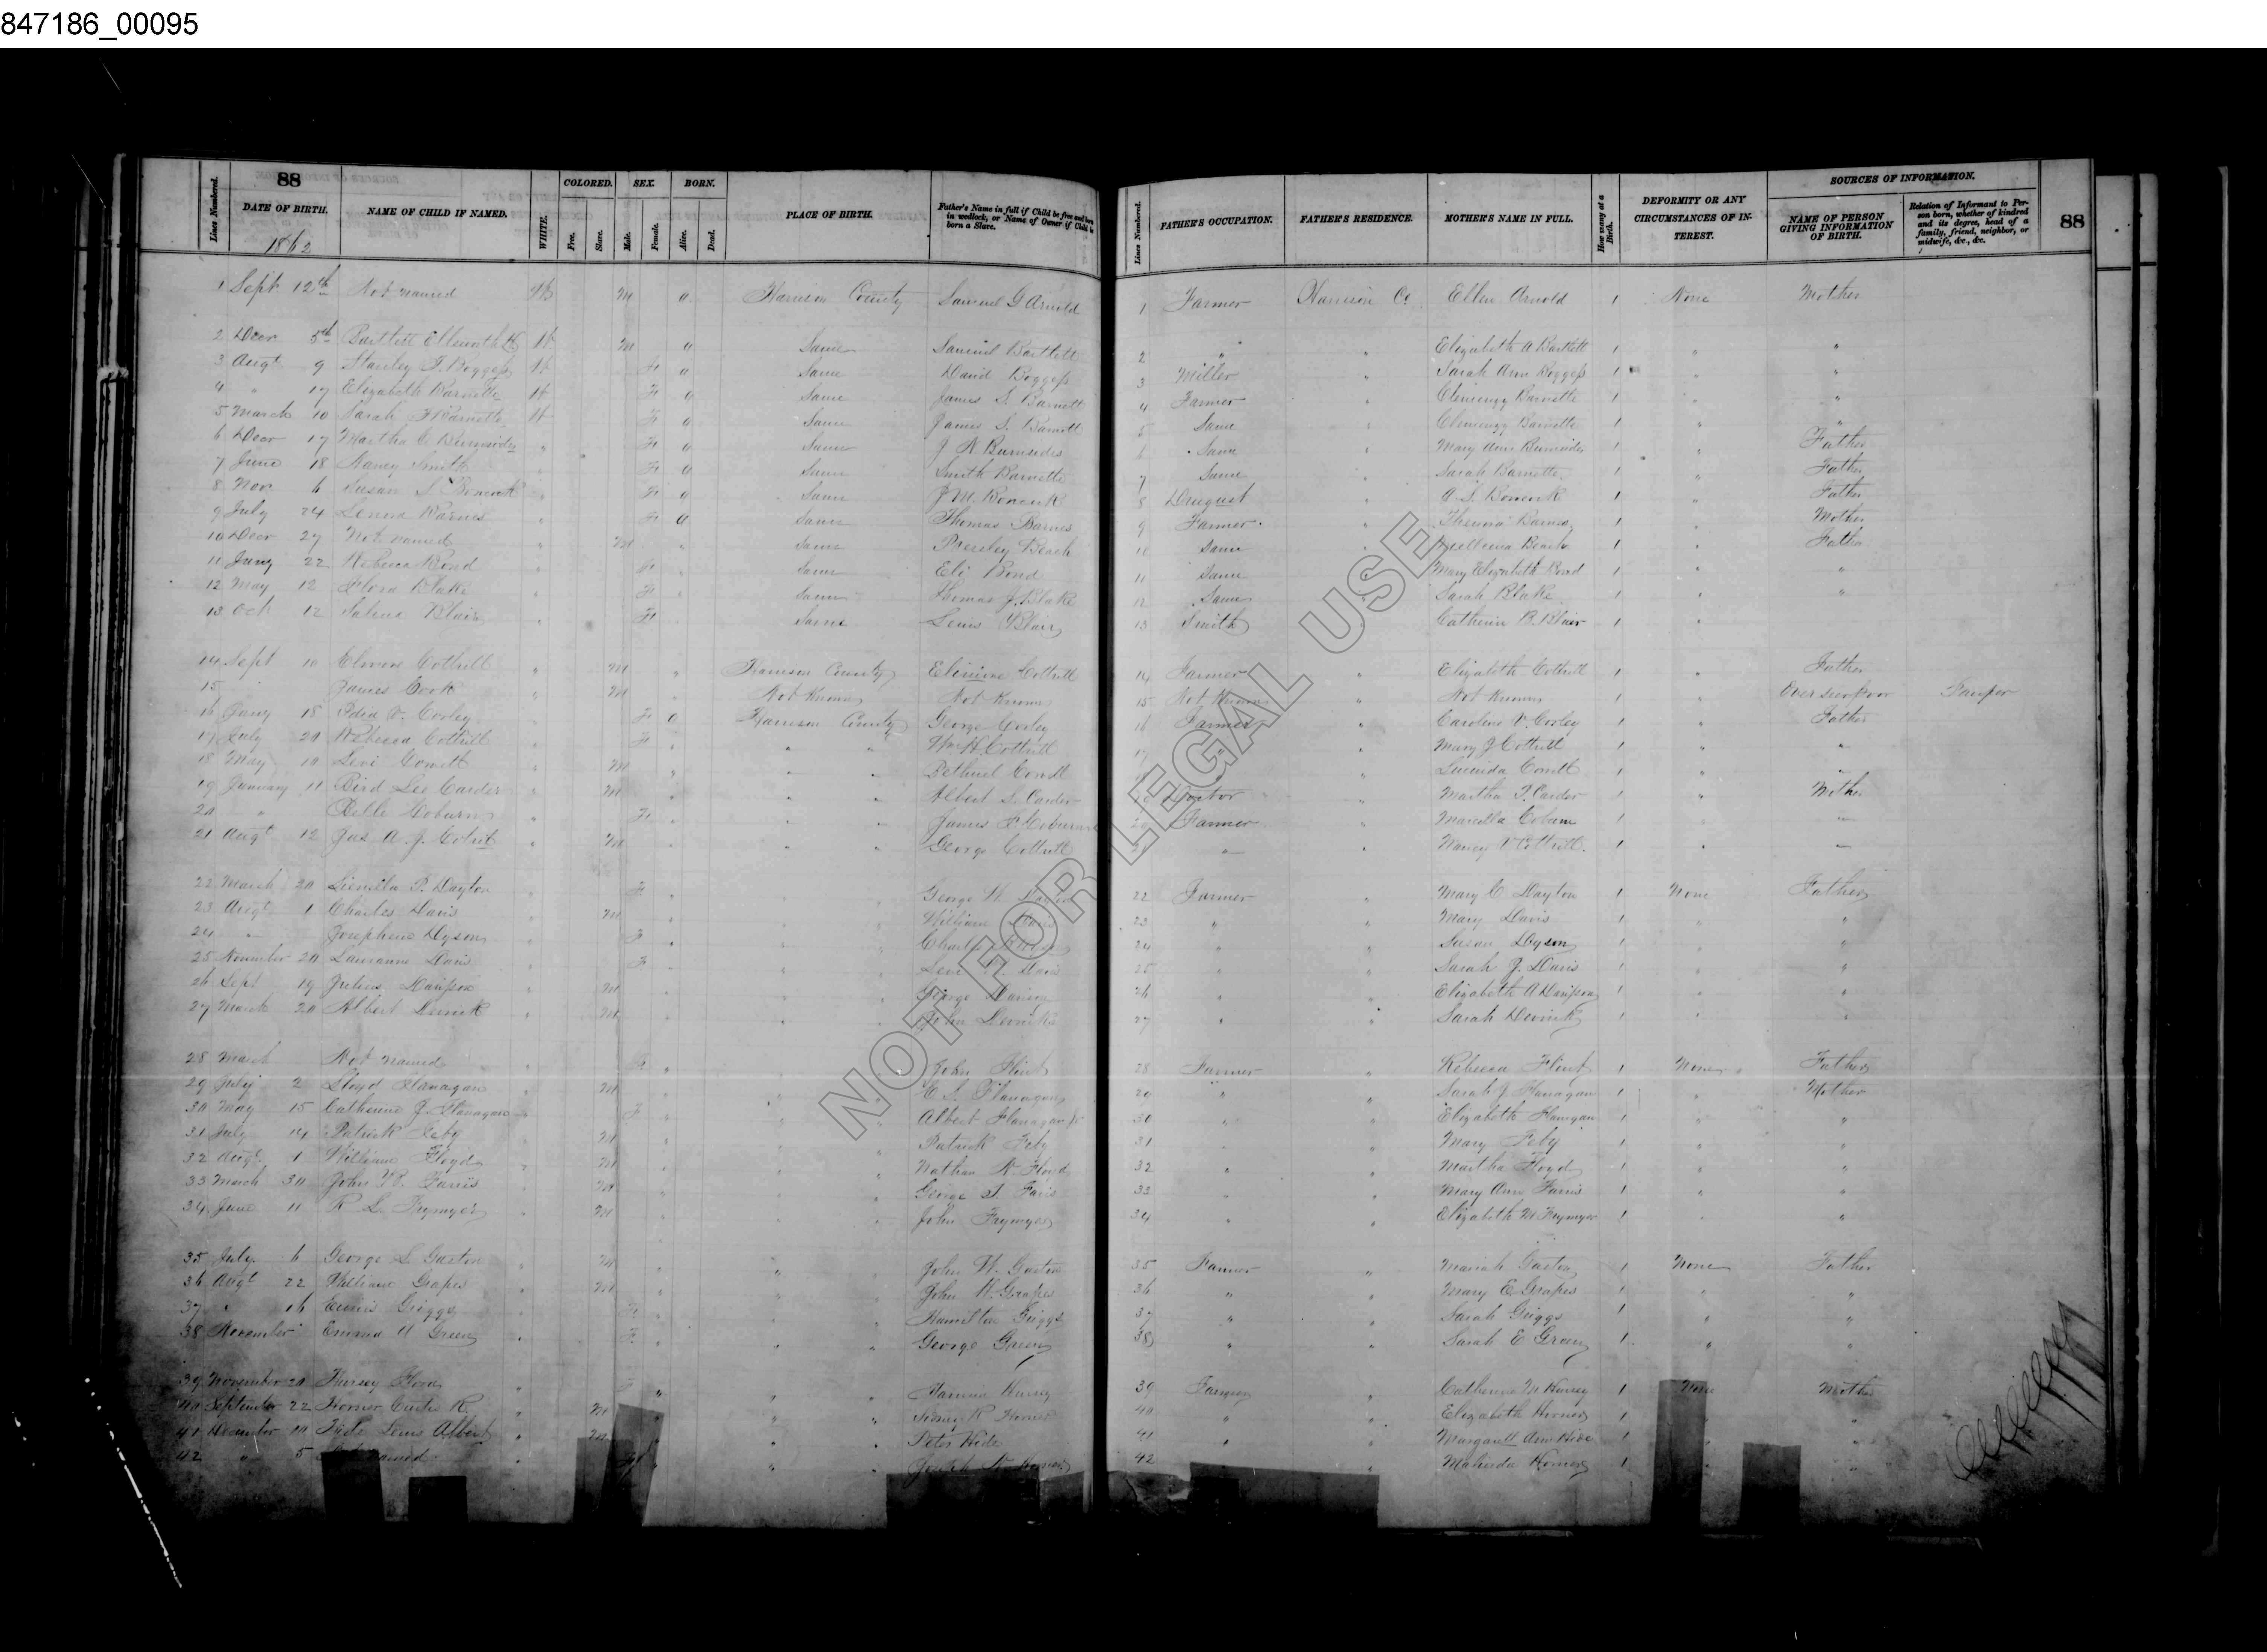 847186_00095
88
Lines Numbered. DATE OF BIRTH. NAME OF CHILD IF NAMED. WHITE. COLORED. Free. Slave. SEX. Male. Female. BORN. Alive. Dead. PLACE OF BIRTH. Father's Name in full if Child be free and born in wedlock, or Name of Owner if Child be born a Slave.
Lines Numbered. FATHER'S OCCUPATION. FATHER'S RESIDENCE. MOTHER'S NAME IN FULL. How many at a Birth. DEFORMITY OR ANY CIRCUMSTANCES OF INTEREST. SOURCES OF INFORMATION. NAME OF PERSON GIVING INFORMATION OF BIRTH. Relation of Informant to Person born, whether of kindred and its degree, head of a family, friend, neighbor, or midwife, &c., &c. 88
1862
1 Sept 12th Not named W M a Harrison County Samuel G Arnold 1 Farmer Harrison Co Ellen Arnold 1 None Mother
2 Decr 5th Bartlett Ellsworth W M a Same Samuel Bartlett 2 " " Elizabeth A Bartlett 1 " "
3 Augt 9 Stanley F. Boggess W F a Same David Boggess 3 Miller " Sarah Ann Boggess 1 " "
4 " 17 Elizabeth Barnette W F a Same James S. Barnett 4 Farmer " Barnette 1 " "
5 March 10 Sarah F Barnette W F a Same James S. Barnett 5 Same " Barnette 1 " "
6 Decr 17 Martha Burnsides " F a Same J N Burnsides 6 Same " Mary Ann Burnsides 1 " Father
7 June 18 Nancy Smith " F a Same Smith Barnette 7 Same " Sarah Barnette 1 " Father
8 Nov 6 Susan S F a Same J M 8 Drugist " A. S. 1 " Father
9 July 24 Lenora Barnes " F a Same Thomas Barnes 9 Farmer " Barnes 1 " Mother
10 Decr 27 Not named " M " Same Presley Beach 10 Same " Beach 1 " Father
11 Jany 22 Rebecca Bond " F " Same Eli Bond 11 Same " Mary Elizabeth Bond 1 " "
12 May 12 Flora Blake " F " Same Thomas J. Blake 12 Same " Sarah Blake 1 " "
13 Oct 12 Salina Blair " F Same Lewis Blair 13 Smith " Catherine B. Blair 1 "
14 Sept 10 Elmore Cottrill " M " Harrison County Elimore Cottrill 14 Farmer " Elizabeth Cottrill 1 " Father
15 " James Cook " M " Not Known Not Known 15 Not Known " Not Known 1 " Overseer poor Pauper
16 Jany 18 V. Corley " F a Harrison County George Corley 16 Farmer " Caroline V. Corley 1 " Father
17 July 20 Rebecca Cottrill " F " " " Wm H Cottrill 17 " " Mary J Cottrill 1 " "
18 May 10 Levi " M " " " Bethuel 18 " " Lucinda 1 " "
19 January 11 Bird Lee Carder " M " " " Albert S. Carder 19 Doctor " Martha P. Carder 1 " Mother
20 " Belle Coburn " F " " " James F Coburn 20 Farmer " Marcella Coburn 1 " "
21 Augt 12 Jas A. J. Cotrill " M " " " George Cottrill 21 " " Nancy V Cottrill. 1 " "
22 March 20 P. Dayton " F " " " George W Dayton 22 Farmer " Mary C Dayton 1 None Father
23 Augt 1 Charles Davis " M " " " William Davis 23 " " Mary Davis 1 " "
24 " Josephine Dyson " F " " " Charles Dyson 24 " " Susan Dyson 1 " "
25 November 20 Davis " F " " " Levi Davis 25 " " Sarah J. Davis 1 " "
26 Sept 19 Julius Davisson " M " " " George 26 " " Elizabeth A Davisson 1 " "
27 March 20 Albert " M " " " John 27 " " Sarah 1 " "
28 March Not named " F " " " John Flint 28 Farmer " Rebecca Flint 1 None Father
29 July 2 Lloyd Flanagan " M " " " E S. Flanagan 29 " " Sarah J Flanagan 1 " Mother
30 May 15 Catherine J. Flanagan " F " " " Albert Flanagan 30 " " Elizabeth Flanigan 1 " "
31 July 14 Patrick Feby " M " " " Patrick Feby 31 " " Mary Feby 1 " "
32 Augt 1 William Floyd " M " " " Nathan N. Floyd 32 " " Martha Floyd 1 " "
33 March 30 John " M " " " George Faris 33 " " Mary Ann Farris 1 " "
34 June 11 R L Frymyer " M " " " John Frymyer 34 " " Elizabeth M Frymyer 1 " "
35 July 6 George L. Gaston " M " " " John W. Gaston 35 Farmer " Mariah Gaston 1 None Father
36 Augt 22 William Grapes " M " " " John W. Grapes 36 " " Mary E Grapes 1 " "
37 " 16 Griggs " F " " " Hamilton Griggs 37 " " Sarah Griggs 1 " "
38 November Emma Green " F " " " George Green 38 " " Sarah E Green 1 " "
39 November 20 Flora " F " " " 39 Farmer " Catherine M 1 None Mother
40 September 22 Horner Curtis R. " M " " " R Horner 40 " " Elizabeth Horner 1 " "
41 December 10 Hide Lewis Albert " M " " " Peter Hide 41 " " Margarett Ann Hide 1 " "
42 " 5 Not named " F " " " Joseph Horner 42 " Malinda Horner 1
NOT FOR LEGAL USE